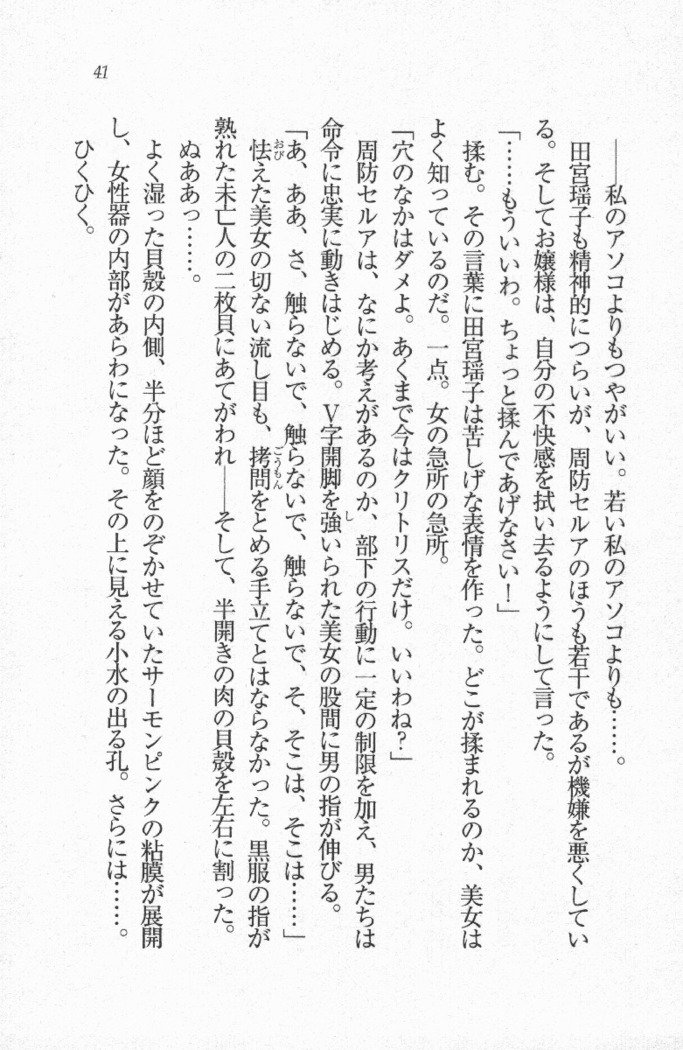 41
――私のアソコよりもつやがいい。若い私のアソコよりも……。
田宮瑶子も精神的につらいが、周防セルアのほうも若干であるが機嫌を悪くしてい
る。そしてお嬢様は、自分の不快感を拭い去るようにして言った。
「……もういいわ。ちょっと揉んであげなさい！」
揉む。その言葉に田宮瑶子は苦しげな表情を作った。どこが揉まれるのか、美女は
よく知っているのだ。一点。女の急所の急所。
「穴のなかはダメよ。あくまで今はクリトリスだけ。いいわね？」
周防セルアは、なにか考えがあるのか、部下の行動に一定の制限を加え、男たちは
命令に忠実に動きはじめる。Ｖ字開脚を強いられた美女の股間に男の指が伸びる。
「あ、ああ、さ、触らないで、触らないで、触らないで、そ、そこは、そこは……」
怯えた美女の切ない流し目も、拷問をとめる手立てとはならなかった。黒服の指が
熟れた未亡人の二枚貝にあてがわれ――そして、半開きの肉の貝殻を左右に割った。
ぬああっ……。
よく湿った貝殻の内側、半分ほど顔をのぞかせていたサーモンピンクの粘膜が展開
し、女性器の内部があらわになった。その上に見える小水の出る孔。さらには……。
ひくひく。